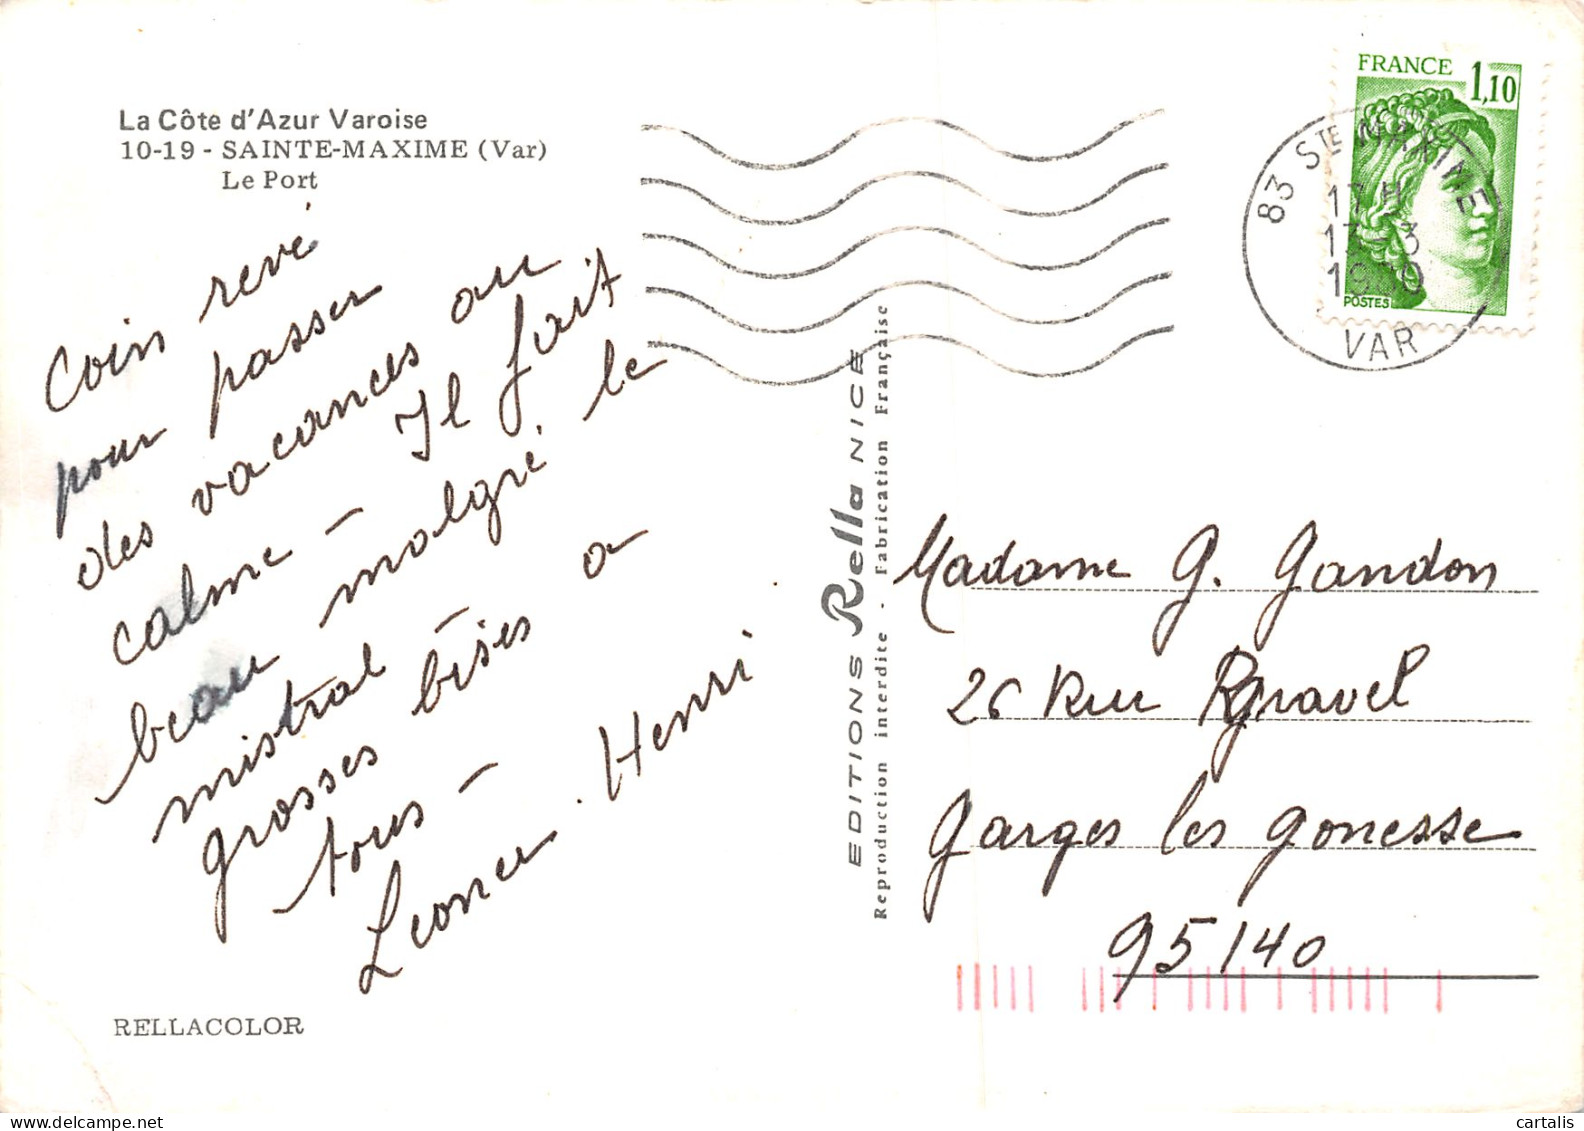 La Côte d'Azur Varoise
10-19 - SAINTE-MAXIME (Var)
Le Port
Coin revé
pour passer
des vacances au
calme - Il fait
beau malgré le
mistral
grosses bises a
tous -
Leonce. Henri
RELLACOLOR
EDITIONS Rella NICE
Reproduction interdite - Fabrication Française
FRANCE 1,10
POSTES
83 STE MAXIME
17 H
13 - 3
1980
VAR
Madame G. Gandon
26 Rue Ravel
Garges les gonesse
95140
cartalis